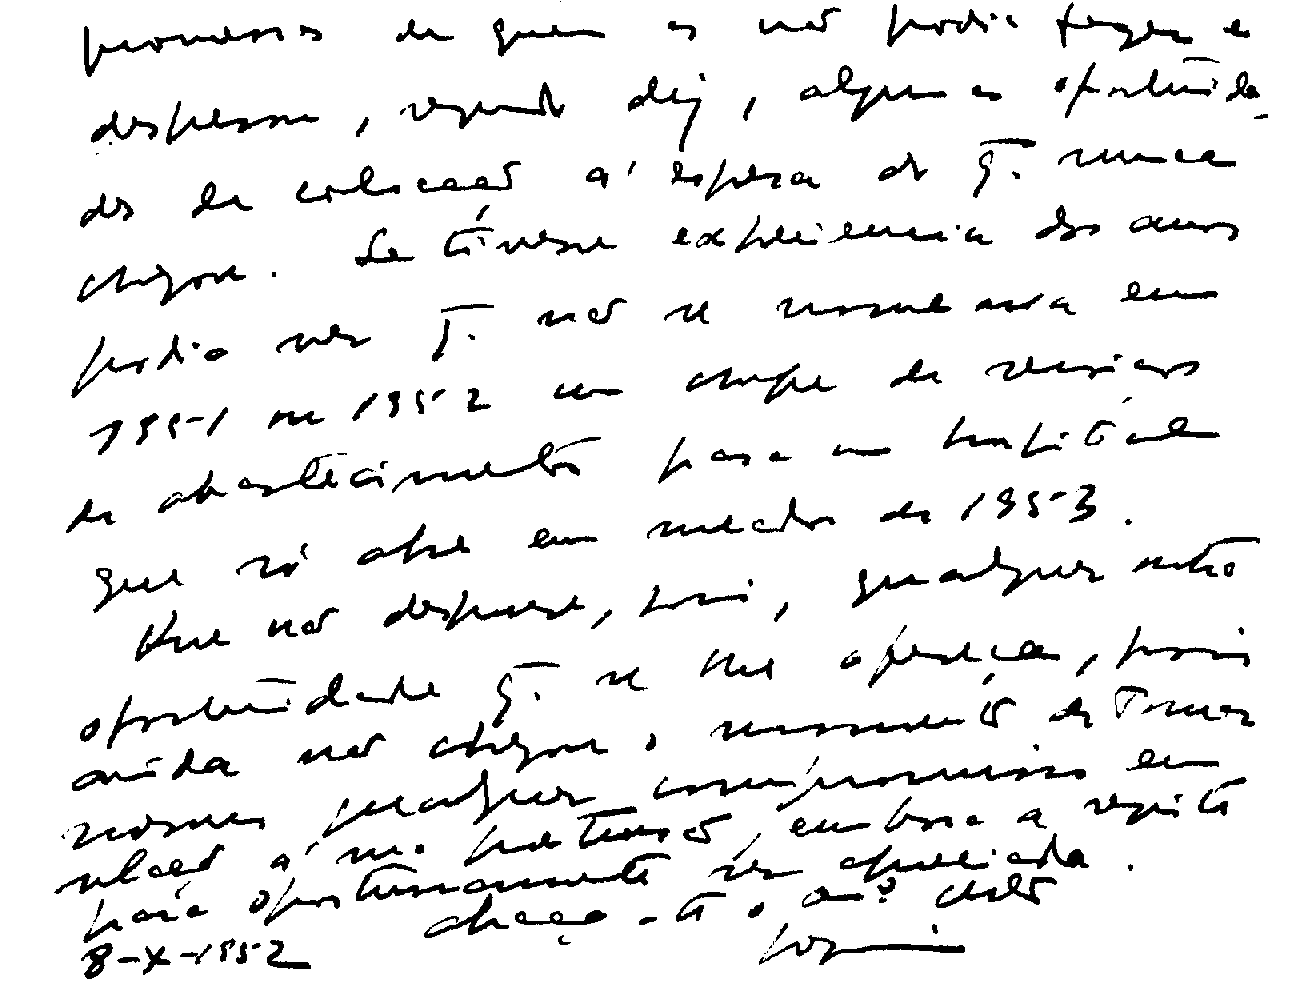 promessas de quem as não podia fazer e
desperson, segundo diz, algumas oportunida-
des de colocação à espera do q. nunca
chegou. Se tivesse experiencia dos anos
podia ver q. não se nomeava em
1951 ou 1952 um chefe de serviços
de abastecimento para um hospital
que só abre em meados de 1953.
Que não despreze, pois, qualquer outra
oportunidade q. se lhe ofereça, pois
ainda não chegou o momento de Tomar
nesmo qualquer compromisso em
relação á sua pretensão, embora a registe
para oportunamente ser apreciada.
abraça-te o am.º
8-X-1952